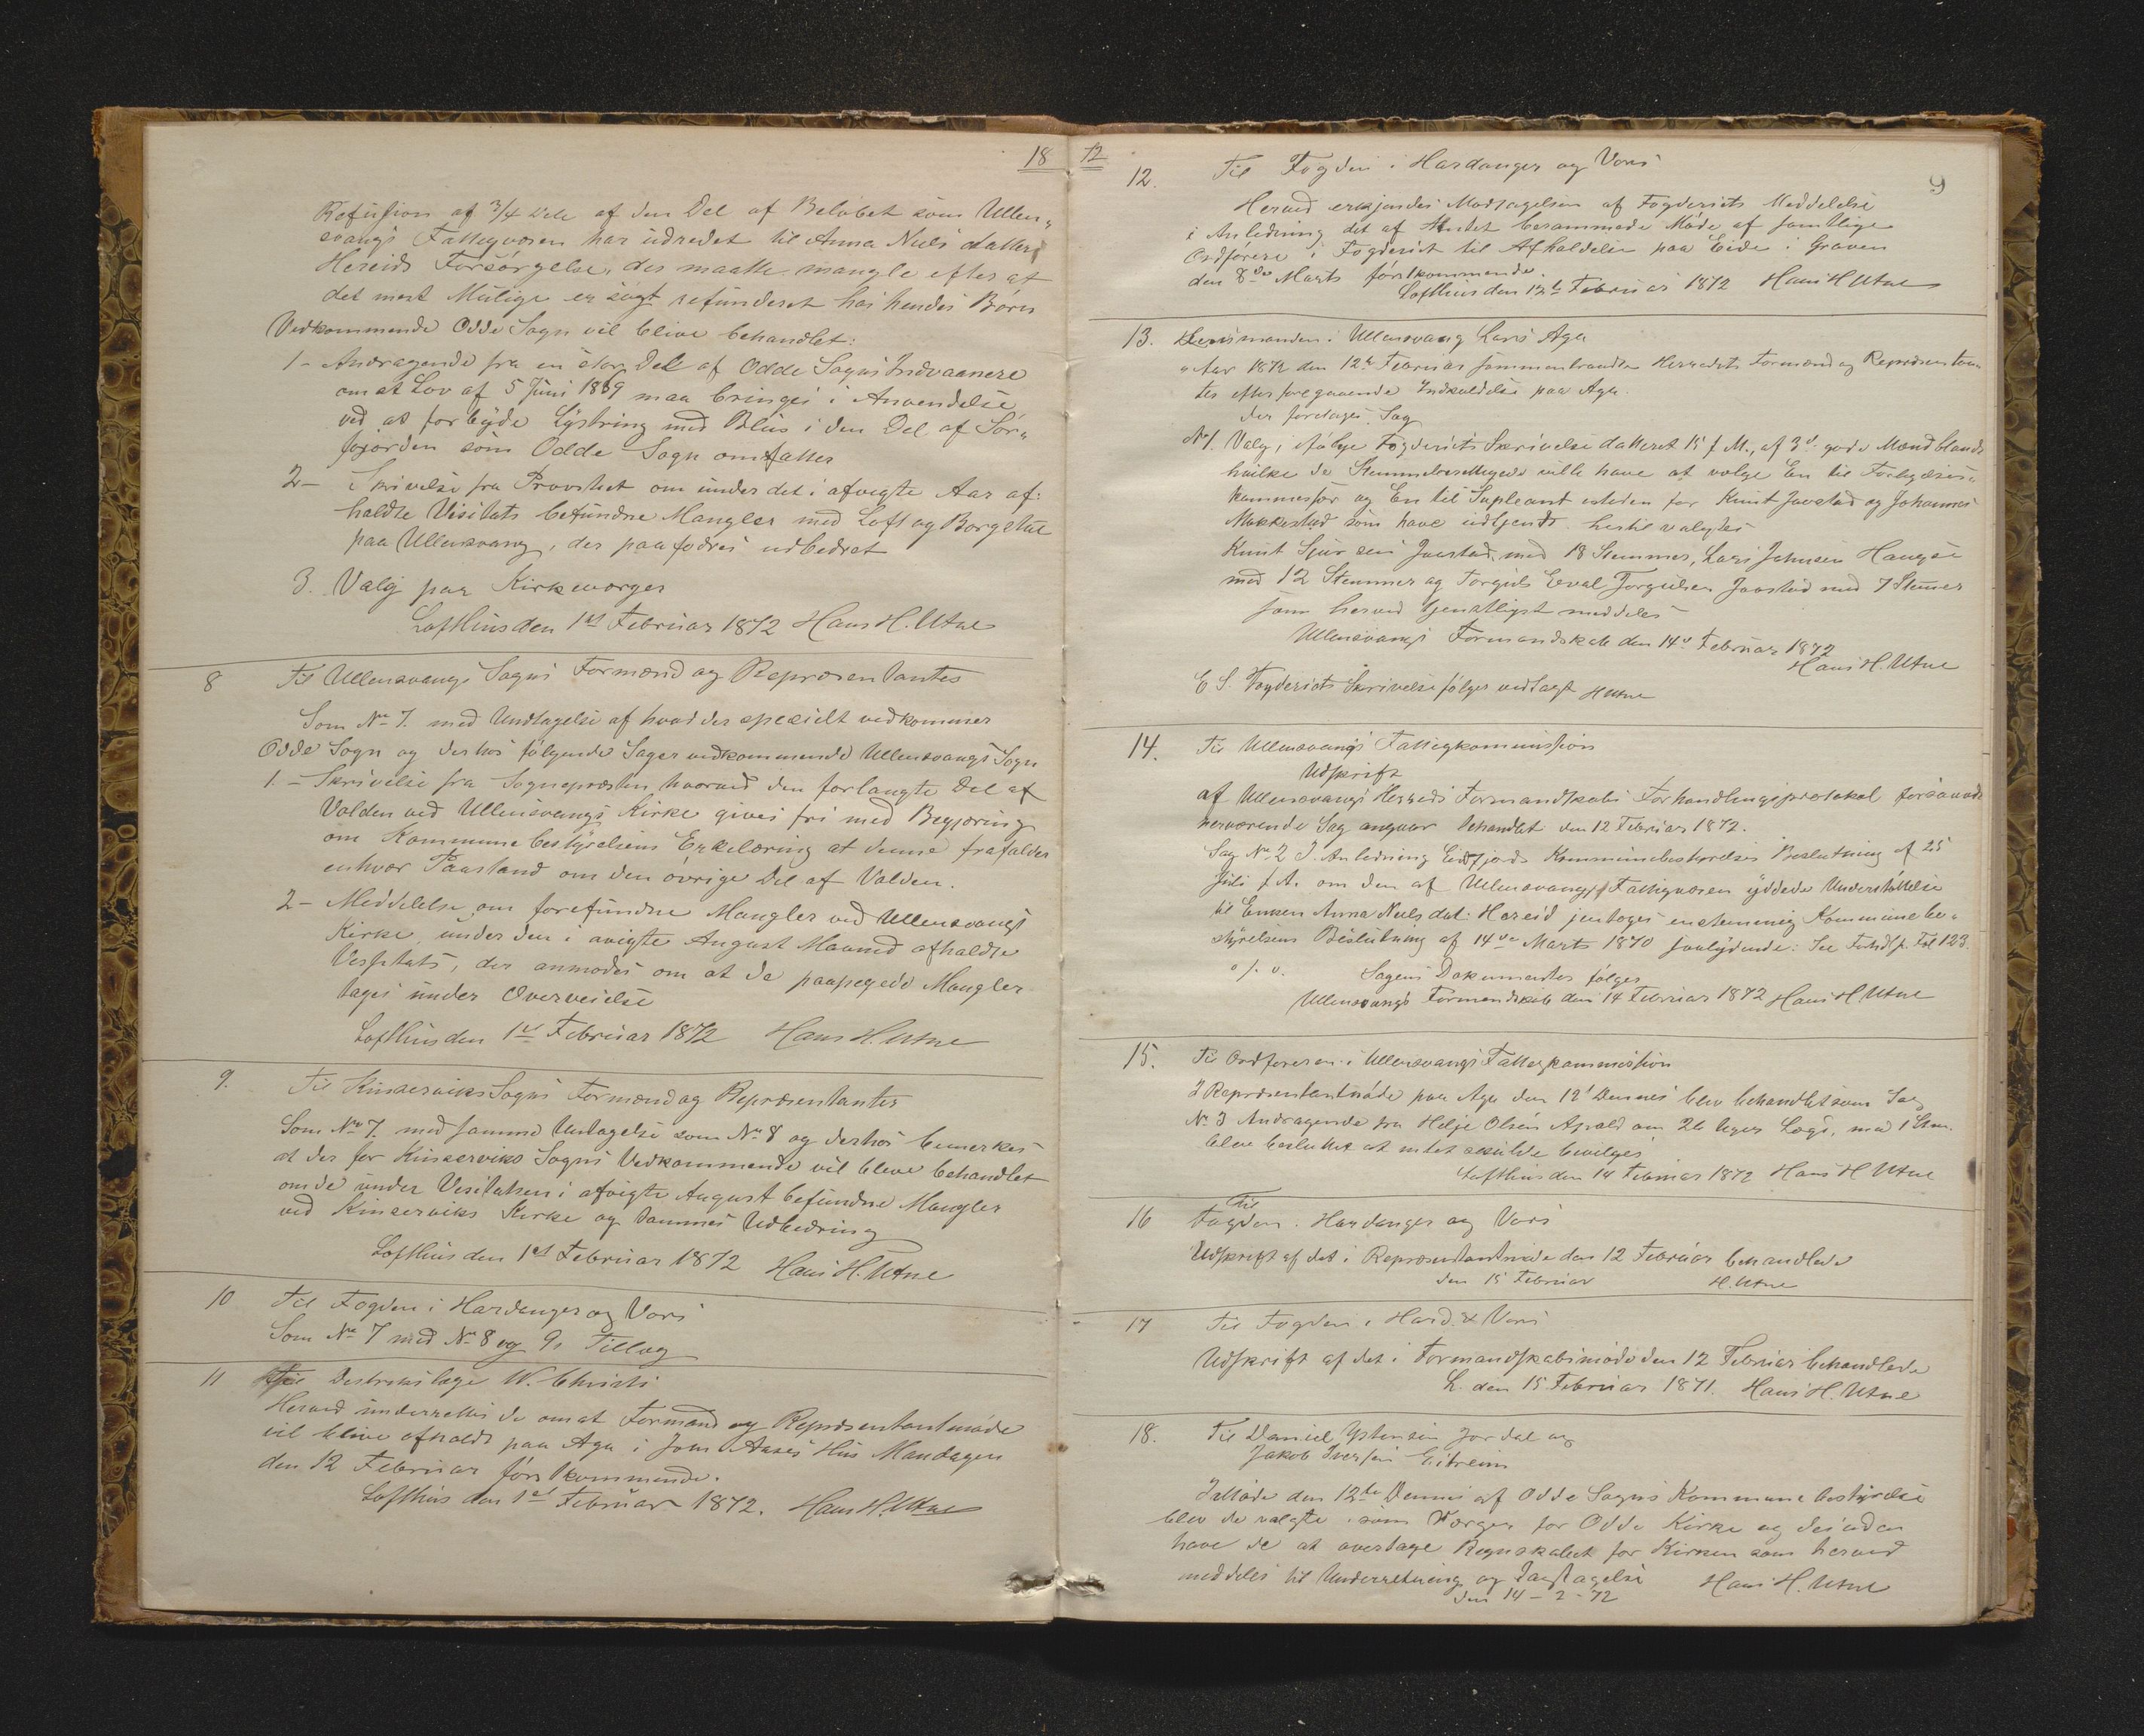 18
Refusion af 3/4 Dele af den Del af Beløbet som Ullen„
svangs Fattigvæsen har udredet til Anna Niels datter
Hereids Forsørgelse, der maatte mangle efter at
det mest Mulige er søgt refunderet hos hendes Børn
Vedkommende Odde Sogn vil blive behandlet:
1 – Andragende fra en stor Del af Odde Sogns Indvaanere
om at Lov af 5 Juni 1869 maa bringes i Anvendelse
ved at forbyde Lystring med Blus i den Del af Sør„
fjorden som Odde Sogn omfatter
2 – Skrivelse fra Provstiet om under det i afvigte Aar af:
holdte Visitats befundne Mangler med Loft og Borgestue
paa Ullensvang, der paafodres udbedret
3. Valg paa Kirkeværger
Lofthus den 1st Februar 1872 Hans H. Utne
8 Til Ullensvangs Sogns Formænd og Repræsentanter
Som No 7. med Undtagelse af hvad der specielt vedkommer
Odde Sogn og derhos følgende Sager vedkommende Ullensvangs Sogn
1. – Skrivelse fra Sognepræsten hvorved den forlangte Del af
Volden ved Ullensvangs Kirke gives fri med Begjæring
om Kommunebestyrelsens Erklæring at denne frafalder
enhver Paastand om den øvrige Del af Volden.
2 – Meddelelse om forefundne Mangler ved Ullensvangs
Kirke under den i avigte August Maaned afholdte
Visitats, der anmodes om at de paapegede Mangler
tages under Overveielse
Lofthus den 1st Februar 1872 Hans H. Utne
9. Til Kinserviks Sogns Formænd og Repræsentanter
Som No 7. med samme Untagelse som No 8 og derhos bemerkes
at der for Kinserviks Sogns Vedkommende vil bleve behandlet
om de under Visitatsen i afvigte August befundne Mangler
ved Kinserviks Kirke og sammes Udbedring
Lofthus den 1st Februar 1872 Hans H. Utne
10 Til Fogden i Hardanger og Vors
Som No 7 med No 8 og 9s Tillæg
11 Til Destrikslæge W. Christi
Herved underrettes de om at Formand og Repræsentantmøde
vil blive afholdt paa Aga i Jon Aases Hus Mandagen
den 12 Februar førstkommende.
Lofthus den 1st Februar 1872. Hans H. Utne
72
9
12. Til Fogden i Hardanger og Vors
Herved erkjendes Modtagelsen af Fogderiets Meddelelse
i Anledning det af Amtet berammede Møde af samtlige
Ordførere i Fogderiet til Afholdelse paa Eide i Graven
den 8de Marts førstkommende.
Lofthus den 12te Februar 1872 Hans H Utne
13. Lensmanden i Ullensvang Lars Aga
Aar 1872 den 12te Februar sammentraadte Herredets Formænd og Repræsentan„
ter efter foregaaende Indkaldelse paa Aga.
der foretoges Sag
No 1. Valg, ifølge Fogderiets Skrivelse datteret 15 f. M., af 3de gode Mænd blandt
hvilke de Stemmeberettigede ville have at vælge En til Forligelses„
kommissær og En til Supleant isteden for Knut Jaastad og Johannes
Måkestad som have udtjendt. hertil valgtes
Knut Sjursen Jaastad med 18 Stemmer, Lars Johnsen Haugse
med 12 Stemmer og Torgils Torgilsen Jaastad med 7 Stemer
som herved tjenstligst meddeles
Ullensvangs Formandskab den 14de Februar 1872
Hans H. Utne
E S. Fogderiets Skrivelse følger vedlagt H Utne
14. Til Ullensvangs Fattigkommission
Udskrift
af Ullensvangs Herreds Formandskabs Forhandlingsprotokol forsaavidt
nærværende Sag angaar behandlet den 12 Februar 1872.
Sag No 2 I Anledning Eidfjords Kommunebestyrelses Beslutning af 25
Juli f. A. om den af Ullensvangs Fattigvæsen yddede Understøttelse
til Enken Anna Niels dat: Hereid jentoges enstemmig Kommunebe„
styrelsens Beslutning af 14de Marts 1870 saalydende: See Forhdlp. Fol 123.
o. s. v. Sagens Dokumenter følges
Ullensvangs Formandskab den 14 Februar 1872 Hans H Utne
15. Til Ordføreren i Ullensvangs Fattigkommission
I Repræsentantmøde paa Aga den 12' Dennes blev behandlet som Sag
No 3 Andragende fra Helje Olsen Apald om Lægd, med
blev besluttet at intet skulde bevilges
Lofthus den 14 Februar 1872 Hans H Utne
16 Til
Fogden i Hardanger og Vors
Udskrift af det i Repræsentantmøde den 12 Februar behandlede
den 15 Februar H. Utne
17 Til Fogden i Hard. & Vors
Udskrift af det i Formandskabsmøde den 12 Februar behandlede
L. den 15 Februar 1871. Hans H. Utne
18. Til Daniel Ystensen Jordal og
Jakob Iversen Eitreim
I Møde den 12te Dennes af Odde Sogns Kommunebestyrelse
blev de valgte som Værger for Odde Kirke og desuden
have de at overtage Regnskabet for Kirken som herved
meddeles til Underretning og Iagttagelse Hans H. Utne
den 14 – 2 – 72